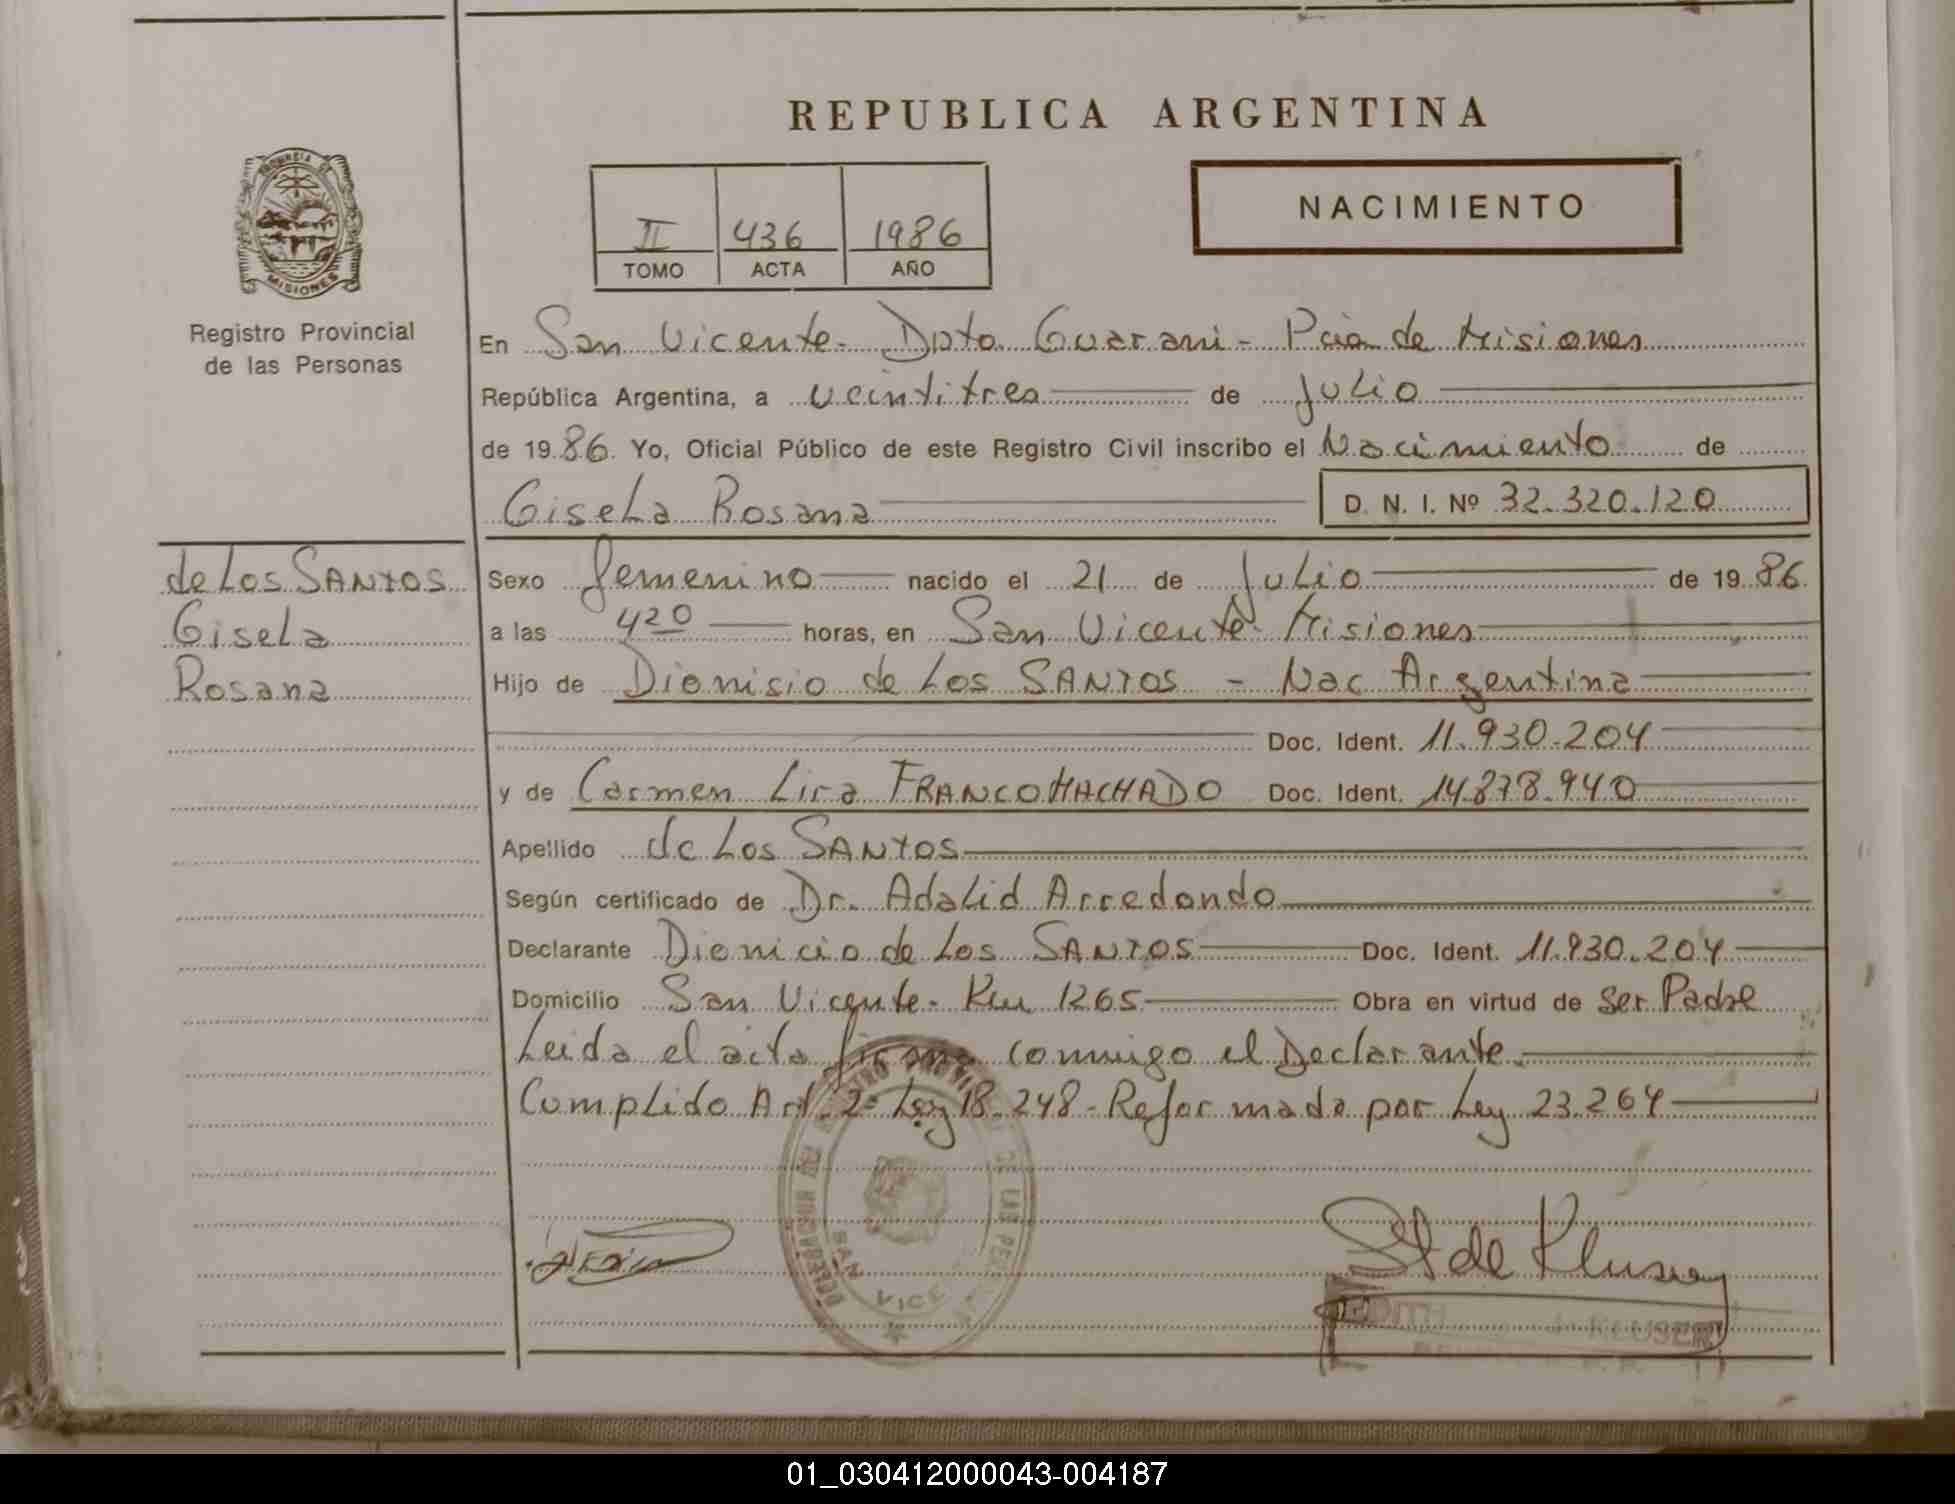 REPUBLICA ARGENTINA
II 436 1986
TOMO ACTA AÑO
NACIMIENTO
PROVINCIA DE
MISIONES
Registro Provincial
de las Personas
En San Vicente- Dpto Guarani- Pcia de Misiones
República Argentina, a veintitres de Julio
de 1986 Yo, Oficial Público de este Registro Civil inscribo el Nacimiento de
Gisela Rosana D. N. I. Nº 32.320.120
de Los SANTOS
Gisela
Rosana
Sexo femenino nacido el 21 de Julio de 1986
a las 420 horas, en San Vicente- Misiones
Hijo de Dionisio de Los SANTOS - Nac Argentina
Doc. Ident. 11.930.204
y de Carmen Lira FRANCO MACHADO Doc. Ident. 14.878.940
Apellido de Los SANTOS
Según certificado de Dr. Adalid Arredondo
Declarante Dionicio de Los SANTOS Doc. Ident. 11.930.204
Domicilio San Vicente- Km 1265 Obra en virtud de ser Padre
Leida el acta firma conmigo el Declarante.
Cumplido Art. 2º Ley 18.248- Reformada por Ley 23.264
DELEGACION DEL REGISTRO PROVINCIAL DE LAS PERSONAS
SAN VICENTE
St de Kluser
EDITH de KLUSER
01_030412000043-004187